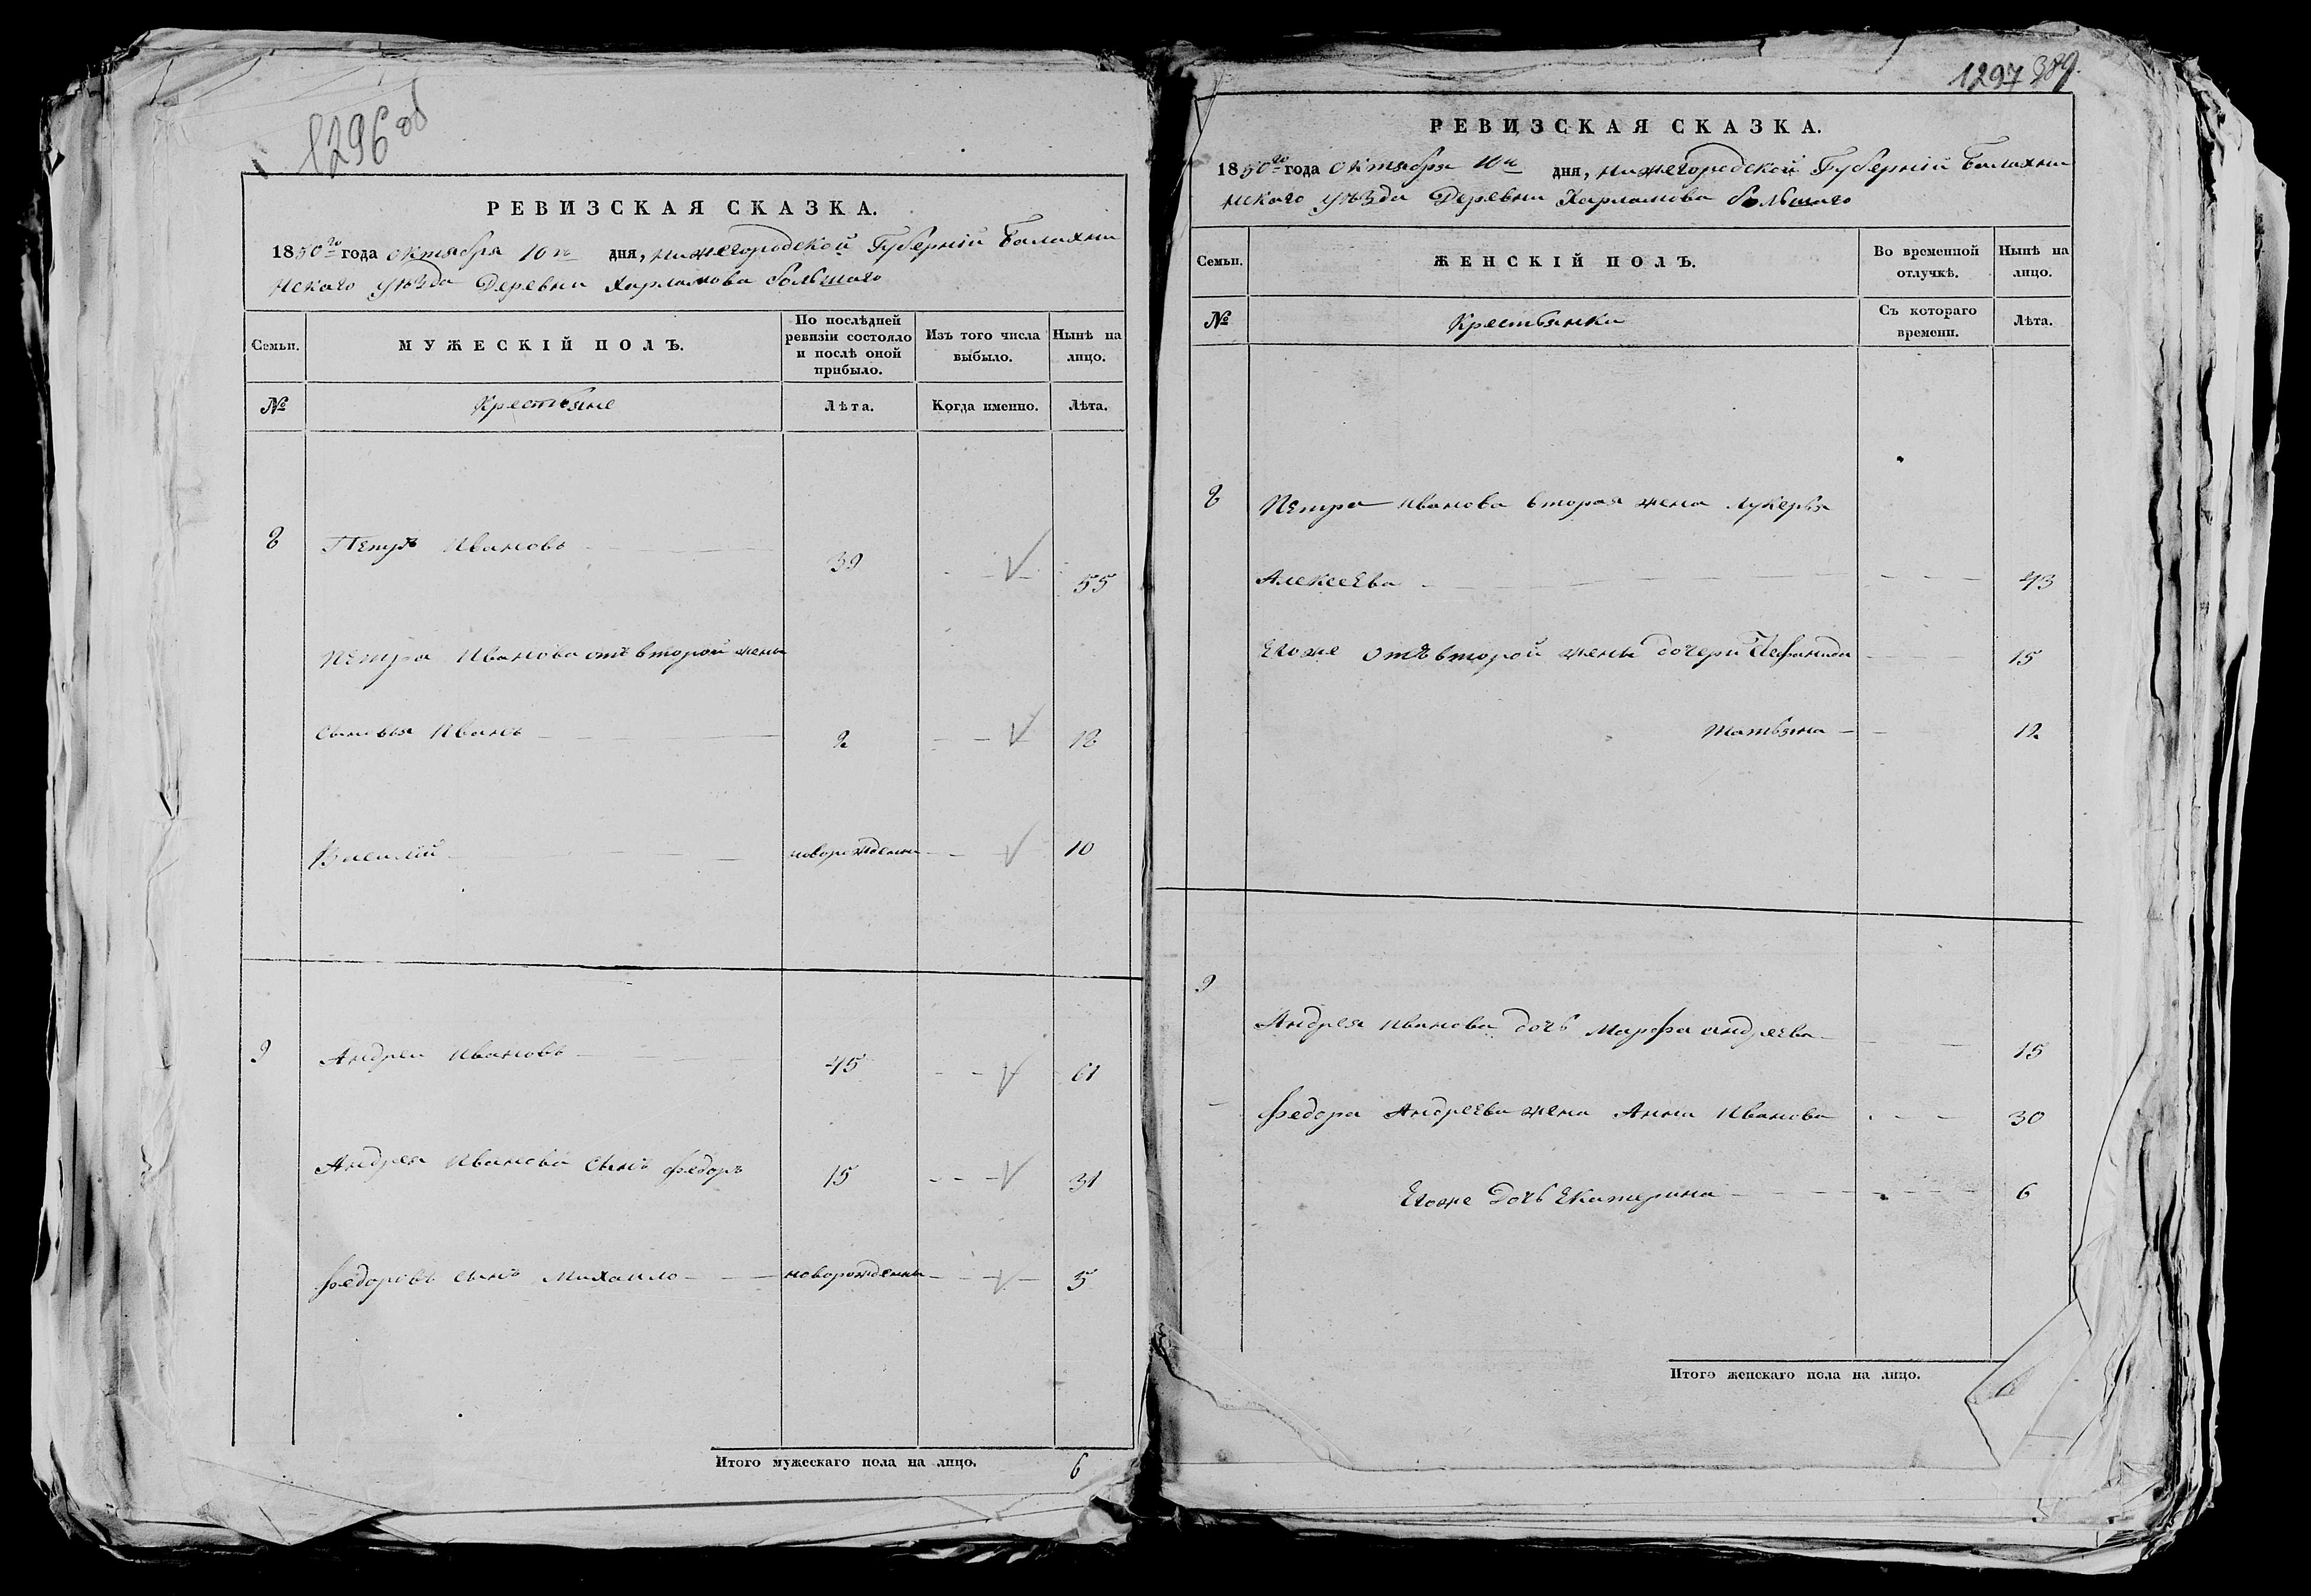 1296 об
РЕВИЗСКАЯ СКАЗКА.
1850го года октября 10го дня, нижегородской Губерній Балахни
нскаго уѣзда Деревни Харламова большаго
Семьи. МУЖЕСКІЙ ПОЛЪ. По послѣдней ревизіи состояло и послѣ оной прибыло. Изъ того числа выбыло. Нынѣ на лицо.
№ Крестьяне Лѣта. Когда именно. Лѣта.
8 Петръ Ивановъ 39 55
Петра Иванова отъ второй жены
сыновья Иванъ 2 18
Василій новорожденны 10
9 Андреи Ивановъ 45 61
Андрея Иванова сынъ федоръ 15 31
федоровъ сынъ Михаило новорожденны 5
Итого мужескаго пола на лицо. 6
1297 389.
РЕВИЗСКАЯ СКАЗКА.
1850го года октября 10го дня, нижегородской Губерній Балахни
нскаго уѣзда Деревни Харламова большаго
Семьи. ЖЕНСКІЙ ПОЛЪ. Во временной отлучкѣ. Нынѣ на лицо.
№ Крестьянки Съ котораго времени. Лѣта.
8 Петра Иванова вторая жена Лукерья
Алексеева 43
Егоже отъ второй жены дочери 15
татьяна 12
9
Андрея Иванова дочь Марфа андреева 15
федора Андреева жена Анна Иванова 30
Егоже дочь Екатерина 6
Итого женскаго пола на лицо.